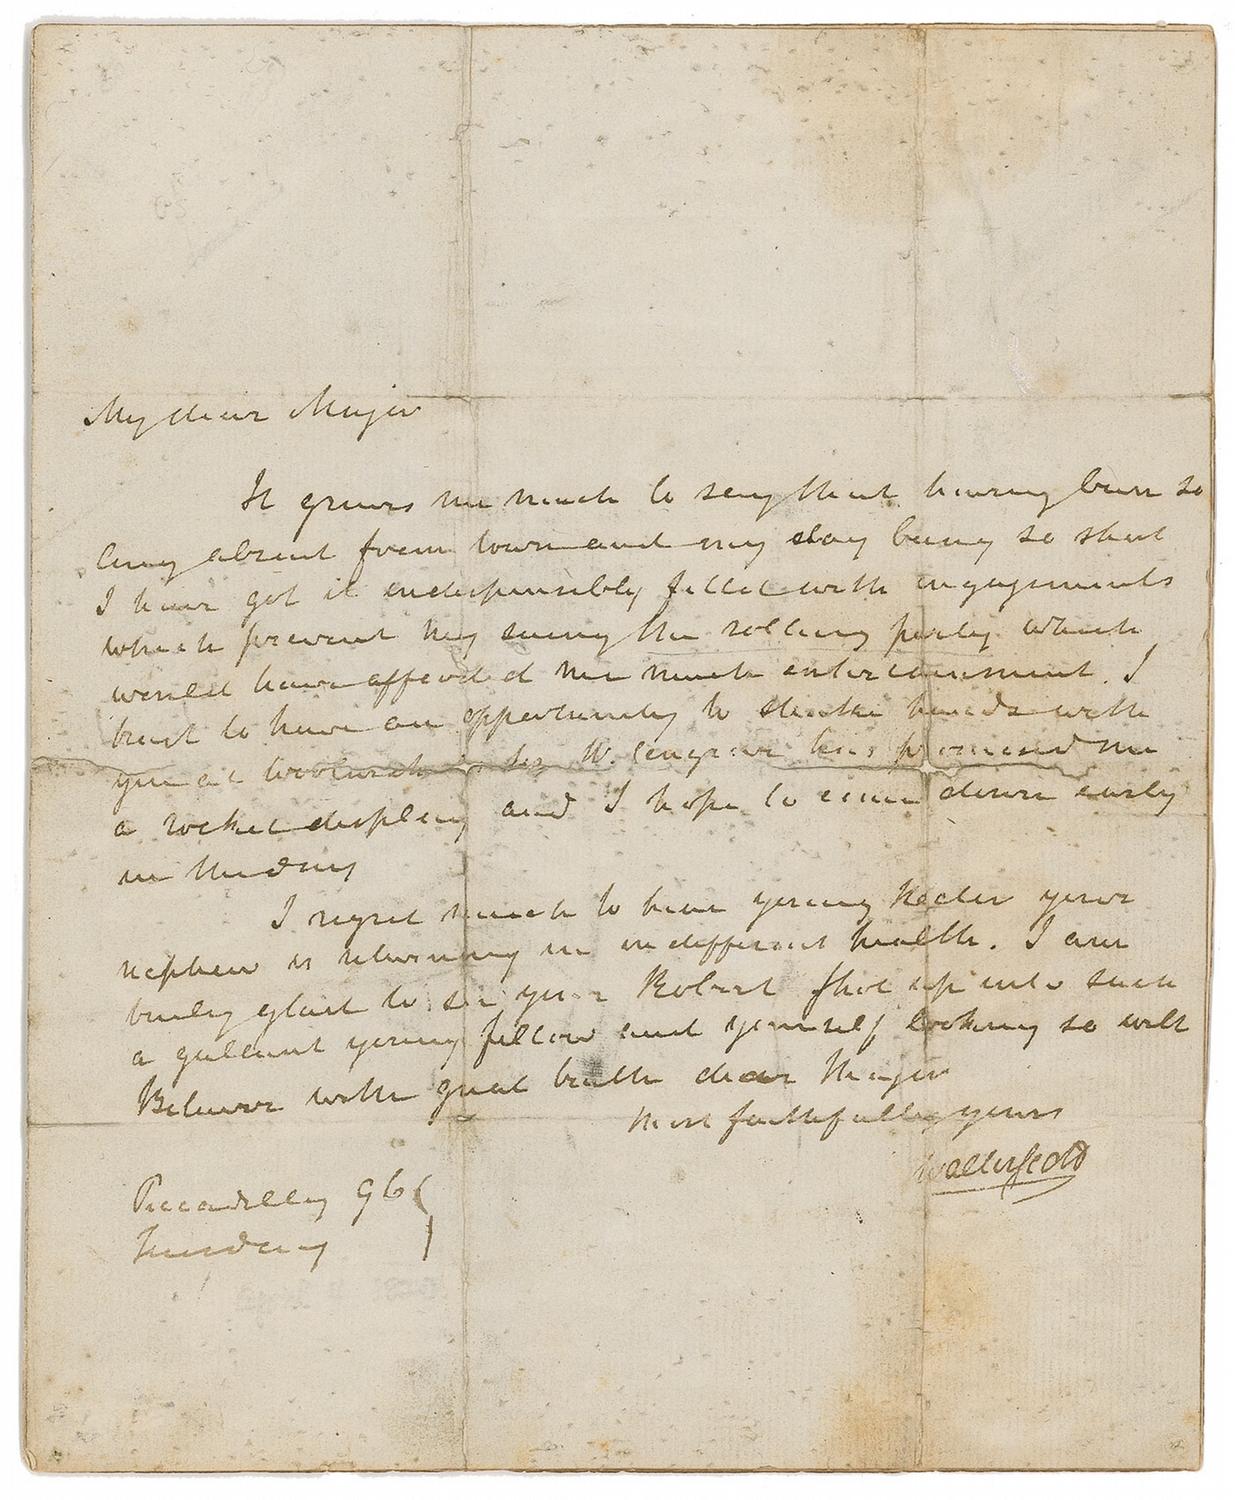 My dear Major
It grieves me much to say that having been so
long absent from town and my stay being so short
I have got it indispensibly filled with engagements
which prevent my seeing the rolling party which
would have affordd me much entertainment. I
trust to have an opportunity to shake hands with
you at Woolwich Sir W. Congreve has promised me
a rocket display and I hope to come down early
in the day
I regret much to hear young Hector your
nephew is returning in indifferent health. I am
truly glad to see your Robert shot up into such
a gallant young fellow and yourself looking so well
Believe with great truth dear Major
Most faithfully yours
Walter Scott
Piccadilly 96